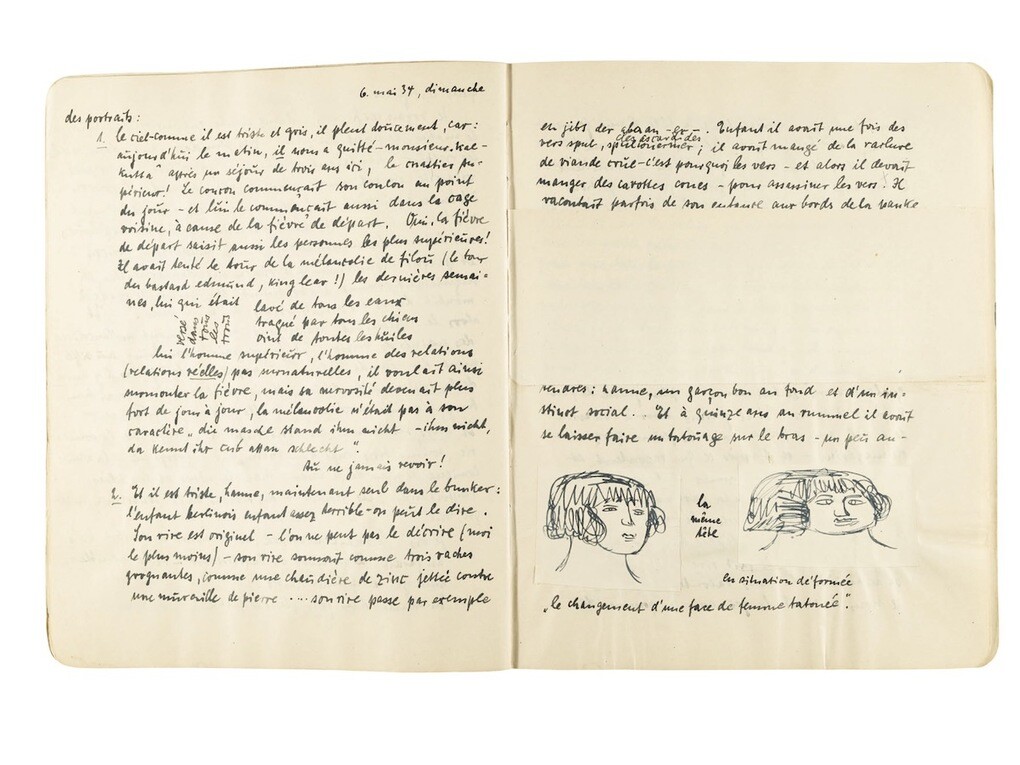 6. mai 34, dimanche
des portraits:
1. le ciel-comme il est triste et gris, il pleut doucement, car:
aujourd'hui le matin, il nous a quitté-monsieur. kal-
après un séjour de trois ans ici,
périeur! Le coucou commençait son coulou au point
du jour - et lui le commençait aussi dans la cage
voisine, à cause de la fièvre de départ. Oui. la fièvre
de départ saisit aussi les personnes les plus supérieures!
Il avait tenté le tour de la mélancolie de filou (le tour
du bastard edmund, king lear!) les dernières semai-
nes, lui qui était lavé de tous les eaux
traqué par tous les chiens
oint de toutes les huiles
versé dans tous les trous
lui l'homme supérieur, l'homme des relations
(relations réelles) pas surnaturelles, il voulait ainsi
surmonter la fièvre, mais sa nervosité devenait plus
fort de jour à jour, la mélancolie n'était pas à son
caractère „die maske stand ihm nicht - ihm nicht,
da kennt ihr cub attan schlecht".
Au ne jamais revoir!
2. Et il est triste, hanne, maintenant seul dans le bunker:
l'enfant berlinois enfant assez terrible-on peut le dire.
Son rire est originel - l'on ne peut pas le décrire (moi
le plus moins) - son rire sonnait comme trois vaches
grognantes, comme une chaudière de zinc jettée contre
une muraille de pierre .... son rire passe par exemple
en jibs der . Enfant il avait une fois des
vers spul, ; il avait mangé de la raclure
des escaroides
de viande crue-c'est pourquoi les vers - et alors il devait
manger des carottes crues - pour assassiner les vers. Il
racontait parfois de son enfance aux bords de la panke
rendres: hanne, un garçon bon au fond et d'un in-
stinct social. . Et à quinze ans au rummel il avait
se laisser faire un tatouage sur le bras - un peu au-
la
même
tête
en situation déformée
„le changement d'une face de femme tatouée".